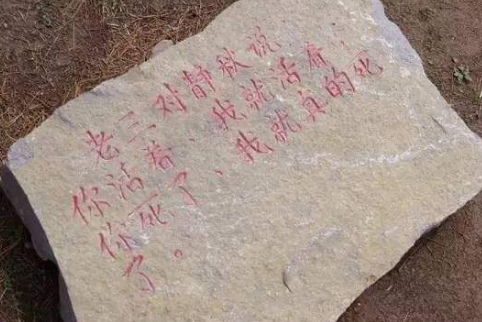 老三对静秋说，
你活着、我就活着，
你死了、我就真的死
了。